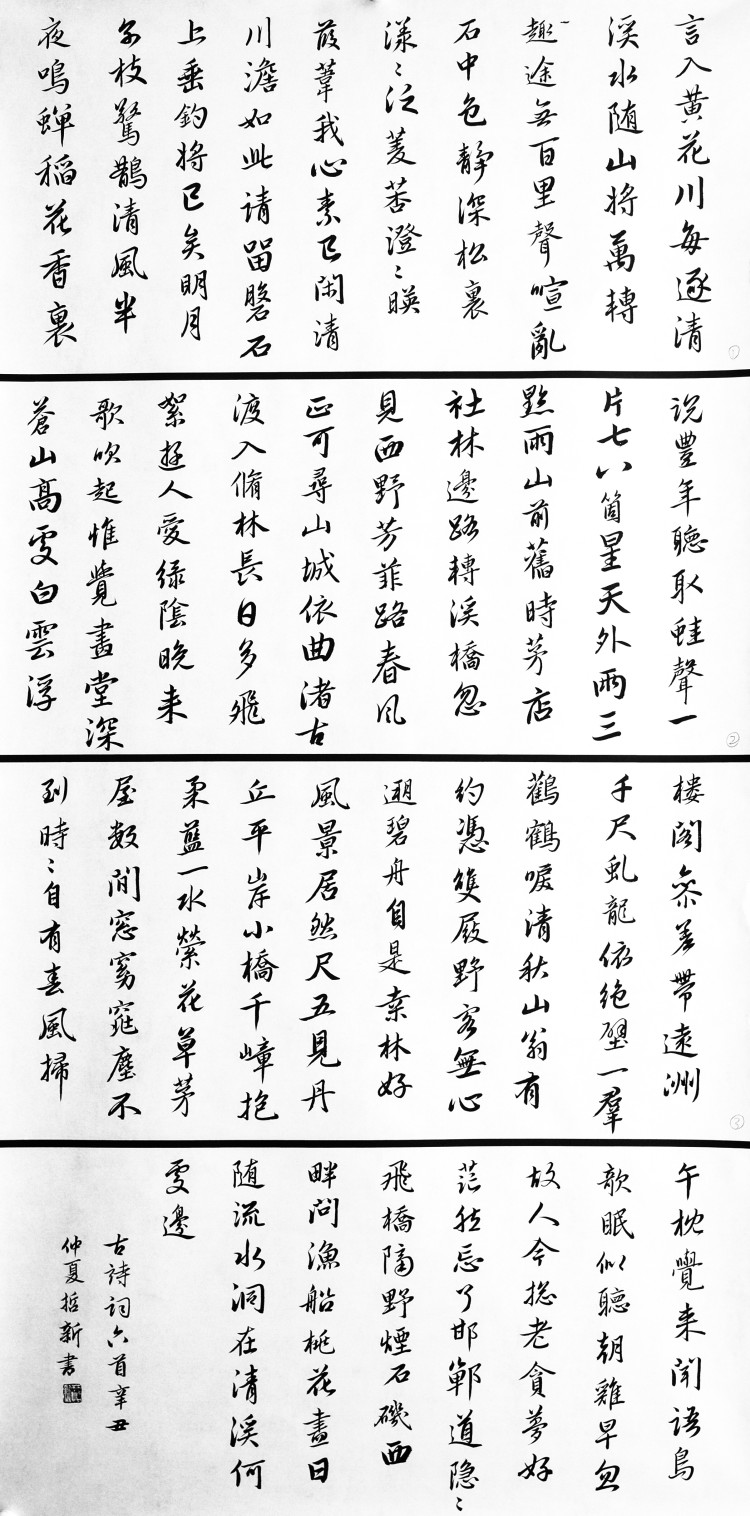 言入黄花川每逐清
溪水随山将萬轉
趣途無百里聲喧亂
石中色静深松裏
漾〻泛菱荇澄〻暎
葭葦我心素已閑清
川澹如此请留磐石
上垂釣将已矣明月
别枝驚鵲清風半
夜鳴蟬稻花香裏
①
说豐年聽取蛙聲一
片七八箇星天外兩三
點雨山前舊時茅店
社林邊路轉溪橋忽
見西野芳菲路春风
正可尋山城依曲渚古
渡入脩林長日多飛
絮遊人愛绿陰晚来
歌吹起惟覺畫堂深
蒼山高處白雲浮
②
楼阁参差带遠洲
千尺虬龍依绝壁一羣
鸛鶴唳清秋山翁有
约憑雙屐野客無心
遡碧舟自是幸林好
風景居然尺五見丹
丘平岸小橋千嶂抱
柔藍一水縈花草茅
屋数間窓窈窕塵不
到時〻自有春風掃
③
午枕覺来聞语鳥
欹眠似聽朝雞早忽
故人今揔老貪夢好
茫然忘了邯鄲道隐〻
飛橋隔野煙石磯西
畔问漁船桃花盡日
随流水洞在清溪何
處邊
古詩词六首辛丑
仲夏哲新書